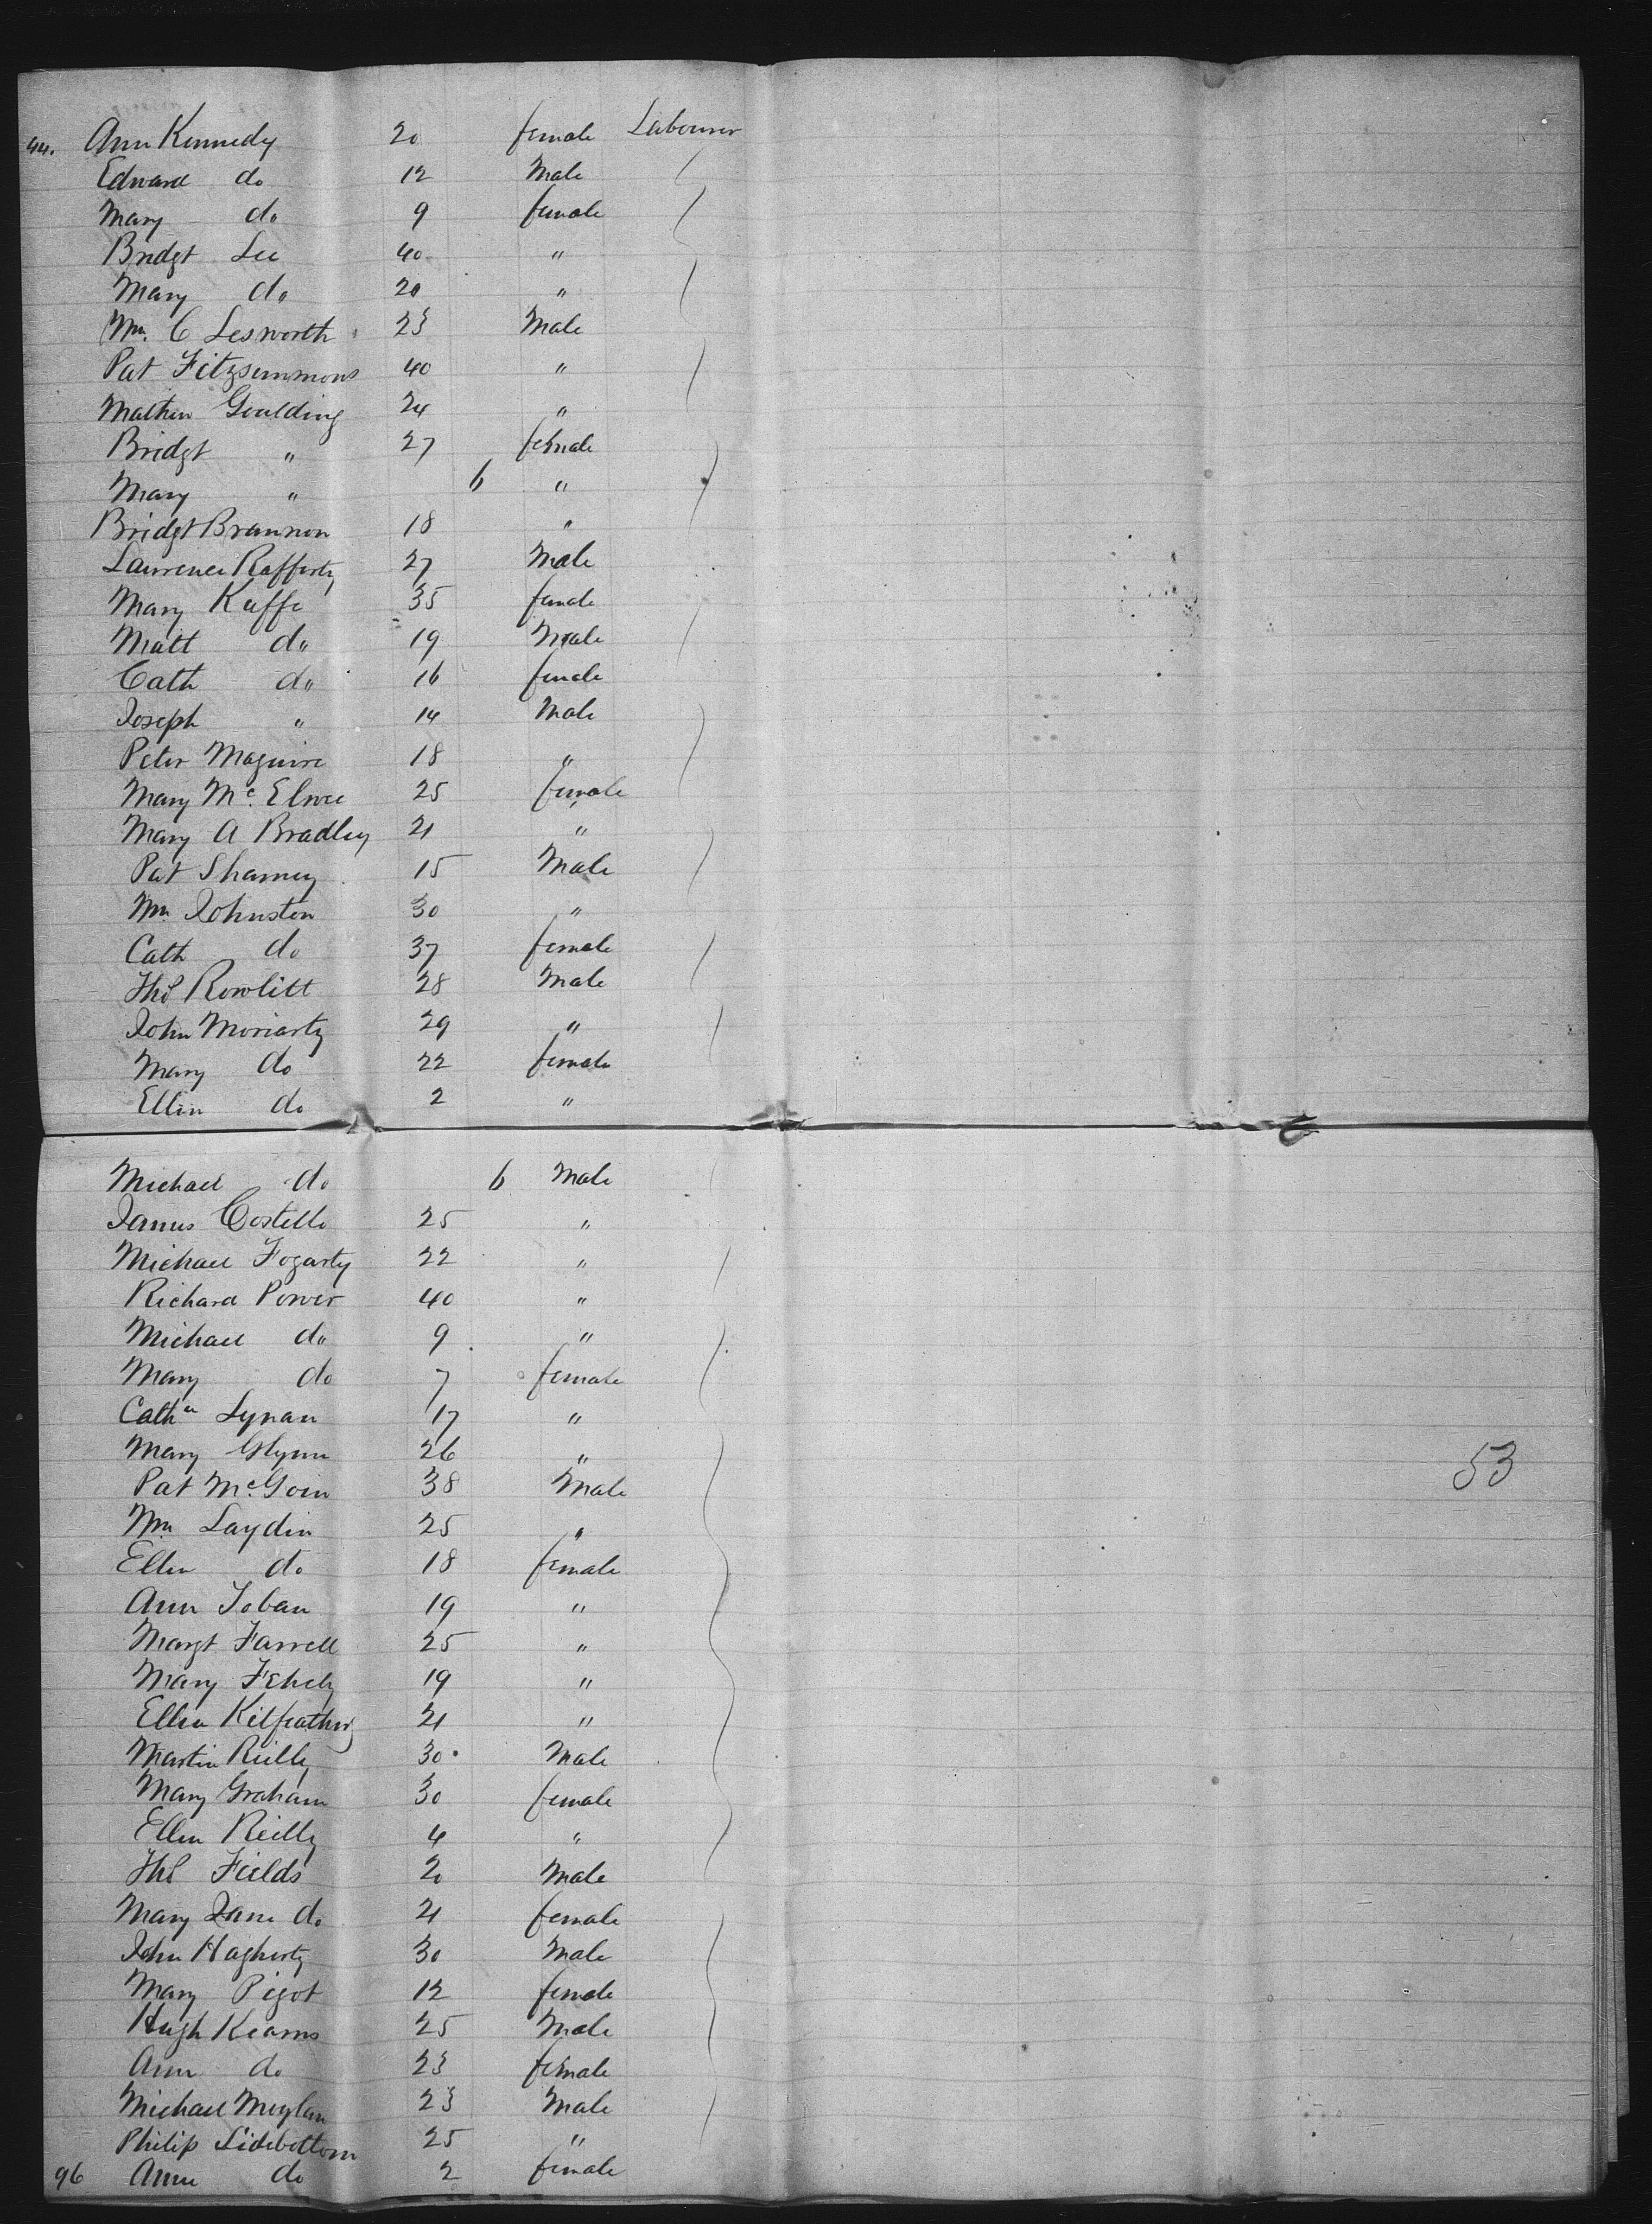 44. Ann Kennedy 20 female Labourer
Edward do 12 Male
Mary do 9 female
Bridgt Lee 40 "
Mary do 20 "
Wm. C Lesworth 23 Male
Pat Fitzsimmons 40 "
Mathew Goulding 24 "
Bridgt " 27 female
Mary " 6 "
Bridgt Brannon 18 "
Lawrence Rafferty 27 Male
Mary Kaffe 35 female
Matt do 19 Male
Cath do 16 female
Joseph " 14 Male
Peter Maguire 18 "
Mary Mc Elwee 25 female
Mary A Bradley 21 "
Pat Sharney 15 Male
Wm Johnston 30 "
Cath do 37 female
Thos Rowlitt 28 Male
John Moriarty 29 "
Mary do 22 female
Ellen do 2 "
Michael do 6 Male
James Costello 25 "
Michael Fogarty 22 "
Richard Power 40 "
Michael do 9 "
Mary do 7 female
Cathn Lynan 17 "
Mary Glynn 26 "
53
Pat McGoin 38 Male
Wm Laydin 25 "
Ellen do 18 female
Ann Toban 19 "
Margt Farrell 25 "
Mary Fehely 19 "
Ellen Kilfeather 21 "
Martin Reilly 30 Male
Mary Graham 30 female
Ellen Reilly 4 "
Thos Fields 20 Male
Mary Jane do 21 female
John Hagherty 30 Male
Mary Pigot 12 female
Hugh Kearns 25 Male
Ann do 23 female
Michael Moylan 23 Male
Philip Sidebottom 25 "
96 Anne do 2 female